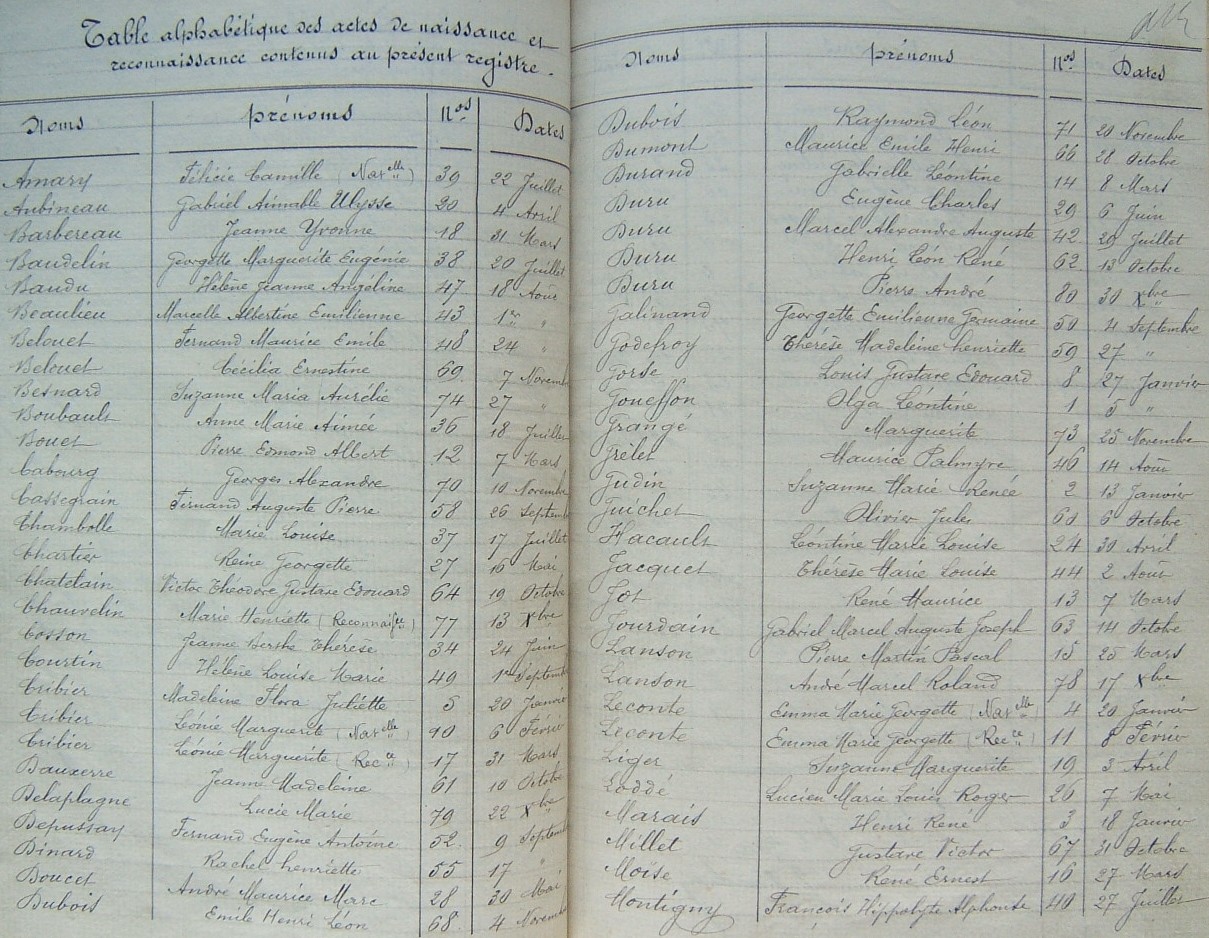 Table alphabétique des actes de naissance et
reconnaissance contenus au présent registre.
Noms Prénoms Nos Dates
Amary Félicie Camille (Natelle) 39 22 Juillet
Aubineau Gabriel Aimable Ulysse 20 4 Avril
Barbereau Jeanne Yvonne 18 31 Mars
Baudelin Georgette Marguerite Eugénie 38 20 Juillet
Baudu Hélène Jeanne Angéline 47 18 Août
Beaulieu Marcelle Albertine Emilienne 43 1er "
Belouet Fernand Maurice Emile 48 24 "
Belouet Cécilia Ernestine 69 7 Novembre
Besnard Suzanne Maria Aurélie 74 27 "
Boubault Anne Marie Aimée 36 18 Juillet
Bouet Pierre Edmond Albert 12 7 Mars
Cabourg Georges Alexandre 70 10 Novembre
Cassegrain Fernand Auguste Pierre 58 26 Septembre
Chambolle Marie Louise 37 17 Juillet
Chartier Reine Georgette 27 16 Mai
Chatelain Victor Théodore Gustave Edouard 64 19 Octobre
Chauvelin Marie Henriette (Reconnaisce) 77 13 Xbre
Cosson Jeanne Berthe Thérèse 34 24 Juin
Courtin Hélène Louise Marie 49 1er Septembre
Cribier Madeleine Flora Juliette 5 20 Janvier
Cribier Léonie Marguerite (Natelle) 90 6 Février
Cribier Léonie Marguerite (Recce) 17 31 Mars
Dauxerre Jeanne Madeleine 61 10 Octobre
Delaplagne Lucie Marie 79 22 Xbre
Depussay Fernand Eugène Antoine 52 9 Septembre
Dinard Rachel Henriette 55 17 "
Doucet André Maurice Marc 28 30 Mai
Dubois Emile Henri Léon 68 4 Novembre
Noms Prénoms Nos Dates
Dubois Raymond Léon 71 20 Novembre
Dumont Maurice Emile Henri 66 28 Octobre
Durand Gabrielle Léontine 14 8 Mars
Duru Eugène Charles 29 6 Juin
Duru Marcel Alexandre Auguste 42 29 Juillet
Duru Henri Léon René 62 13 Octobre
Duru Pierre André 80 30 Xbre
Galinand Georgette Emilienne Germaine 50 4 Septembre
Godefroy Thérèse Madeleine Henriette 59 27 "
Gorse Louis Gustave Edouard 8 27 Janvier
Goueffon Olga Léontine 1 5 "
Grangé Marguerite 73 25 Novembre
Grélet Maurice Palmyre 46 14 Août
Gudin Suzanne Marie Renée 2 13 Janvier
Guichet Olivier Jules 60 6 Octobre
Hacault Léontine Marie Louise 24 30 Avril
Jacquet Thérèse Marie Louise 44 2 Août
Jot René Maurice 13 7 Mars
Jourdain Gabriel Marcel Auguste Joseph 63 14 Octobre
Lanson Pierre Martin Pascal 15 25 Mars
Lanson André Marcel Roland 78 17 Xbre
Leconte Emma Marie Georgette (Natelle) 4 20 Janvier
Leconte Emma Marie Georgette (Recce) 11 8 Février
Liger Suzanne Marguerite 19 3 Avril
Loddé Lucien Marie Louis Roger 26 7 Mai
Marais Henri René 3 18 Janvier
Millet Gustave Victor 67 31 Octobre
Moïse René Ernest 16 27 Mars
Montigny François Hippolyte Alphonse 40 27 Juillet